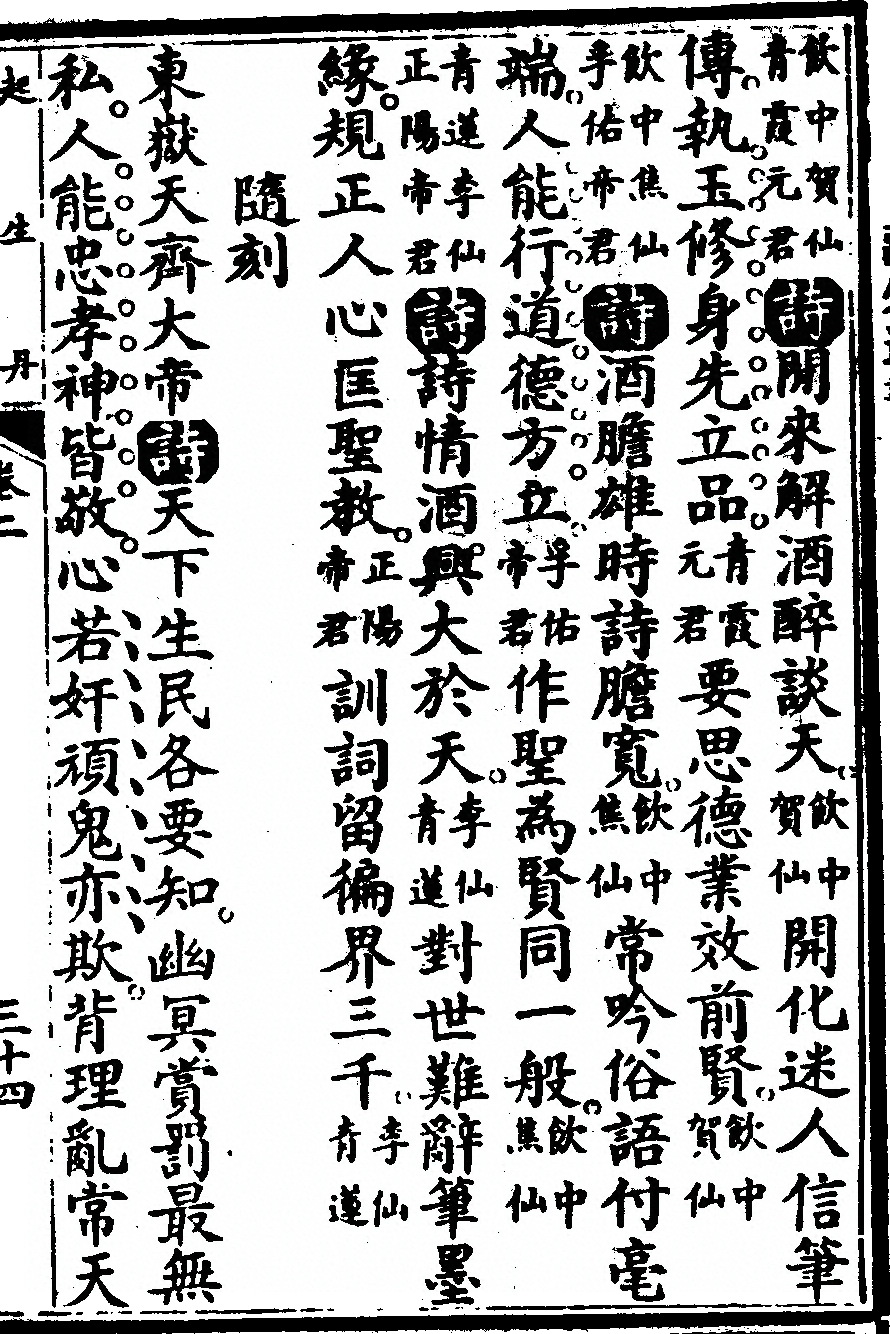 飲中賀仙青霞元君詩閒來解酒醉談天飲中賀仙開化迷人信筆
傳執玉修身先立品青霞元君要思德業效前賢飲中賀仙
飲中焦仙孚佑帝君詩酒膽雄時詩膽寬飲中焦仙常吟俗語付毫
端人能行道德方立孚佑帝君作聖為賢同一般飲中焦仙
青蓮李仙正陽帝君詩詩情酒興大於天李仙青蓮對世難辭筆墨
緣規正人心匡聖教正陽帝君訓詞留徧界三千李仙青蓮
隨刻
東嶽天齊大帝詩天下生民各要知幽冥賞罰最無
私人能忠孝神皆敬心若奸頑鬼亦欺背理亂常天
起生丹
卷二
三十四